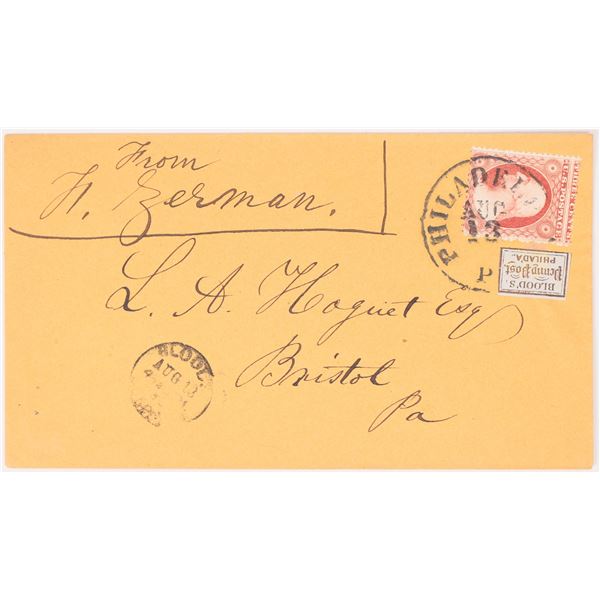 From
H. Zerman.
L. A. Hoguet Esq
Bristol
Pa
PHILADEL
AUG
13
P
U.S. POSTAGE
BLOOD'S
Penny Post
PHILADA.
BLOOD
AUG 13